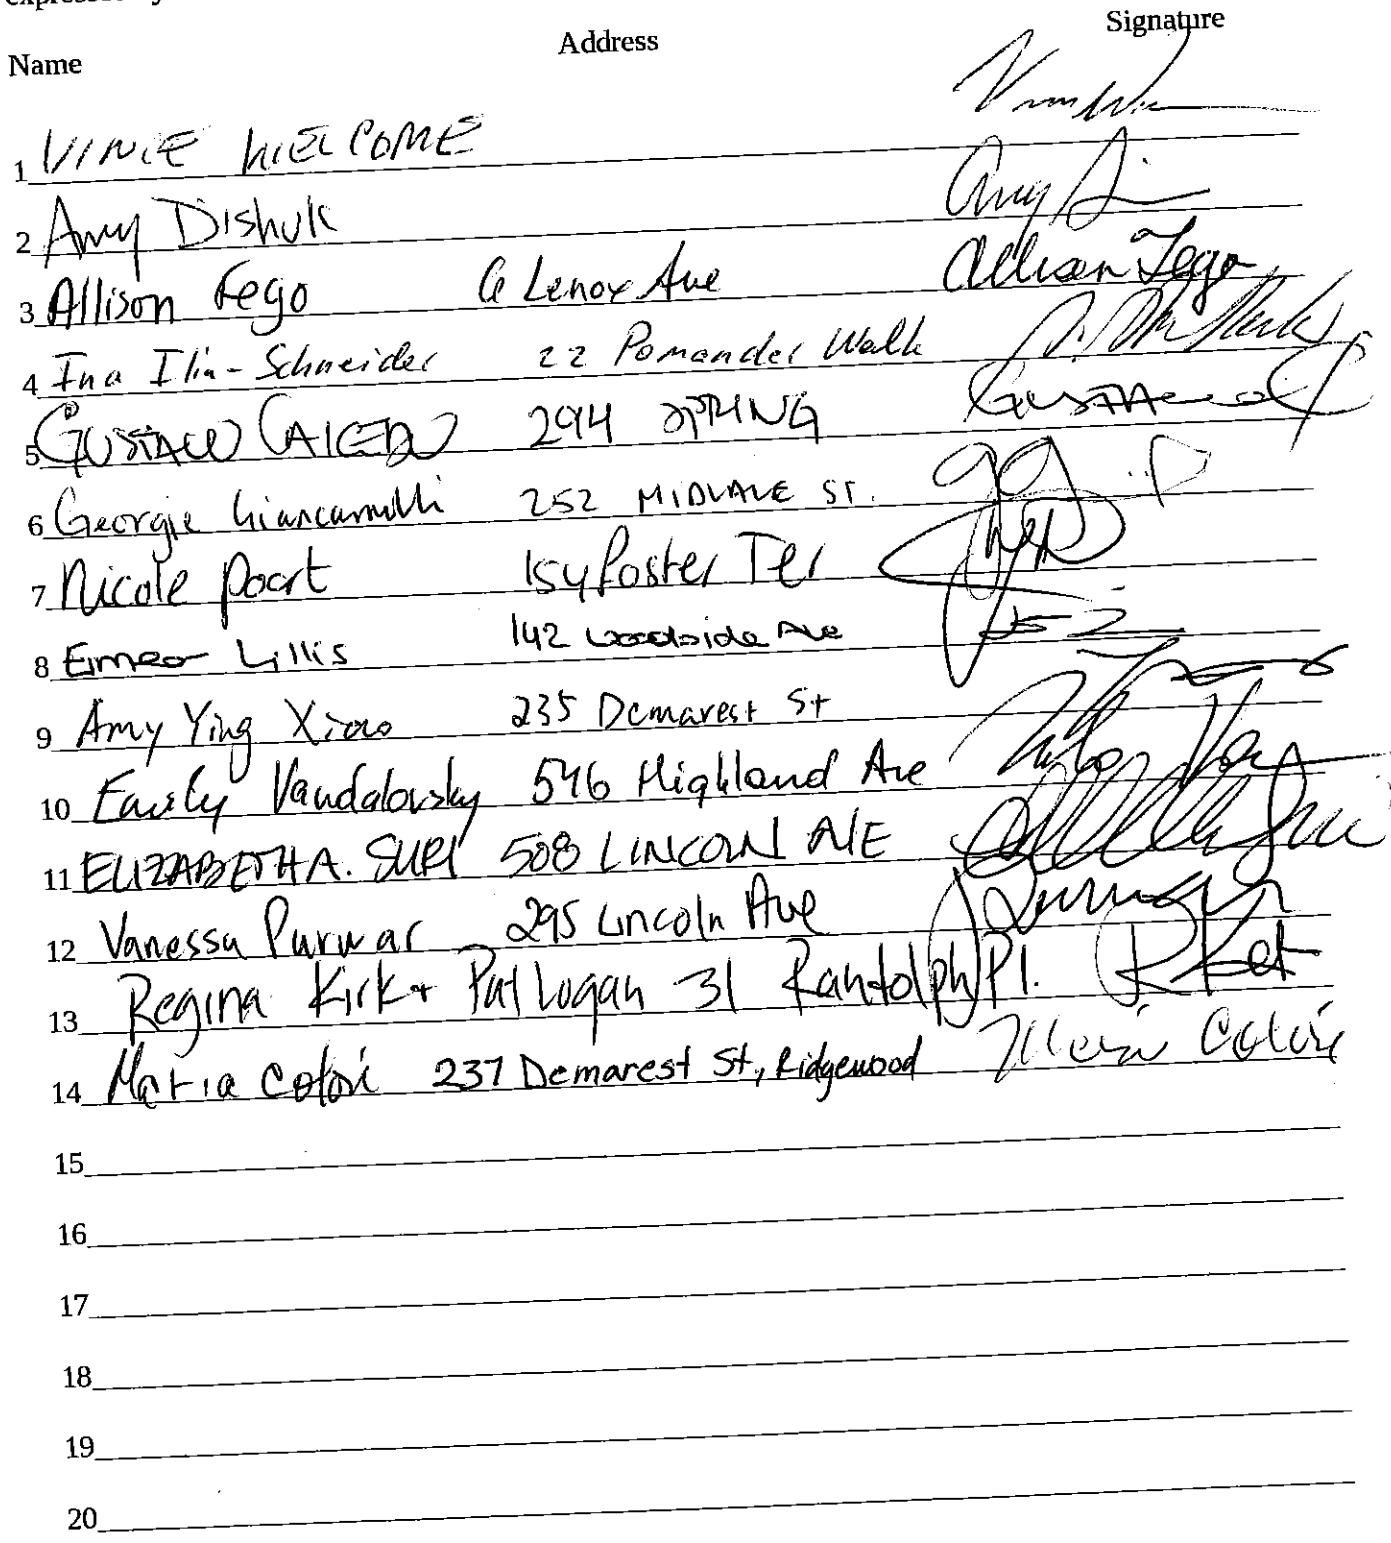 Name Address Signature
1 VINCE WELCOME
2 Amy Dishuk Amy
3 Allison Fego 6 Lenox Ave Allison Fego
4 Ina Ilin-Schneider 22 Pomander Walk
5 GUSTAVO CAICEDO 294 SPRING
6 Georgie Giancamilli 252 MIDVALE ST.
7 Nicole Poort 154 Foster Ter
8 Eimear Lillis 142 Woodside Ave
9 Amy Ying Xiao 235 Demarest St
10 Vandalovsky 546 Highland Ave
11 ELIZABETH A. SURI 508 LINCOLN AVE
12 Vanessa Purwar 295 Lincoln Ave
13 Regina Kirk + Pat Logan 31 Randolph Pl.
14 Maria 237 Demarest St, Ridgewood
15
16
17
18
19
20